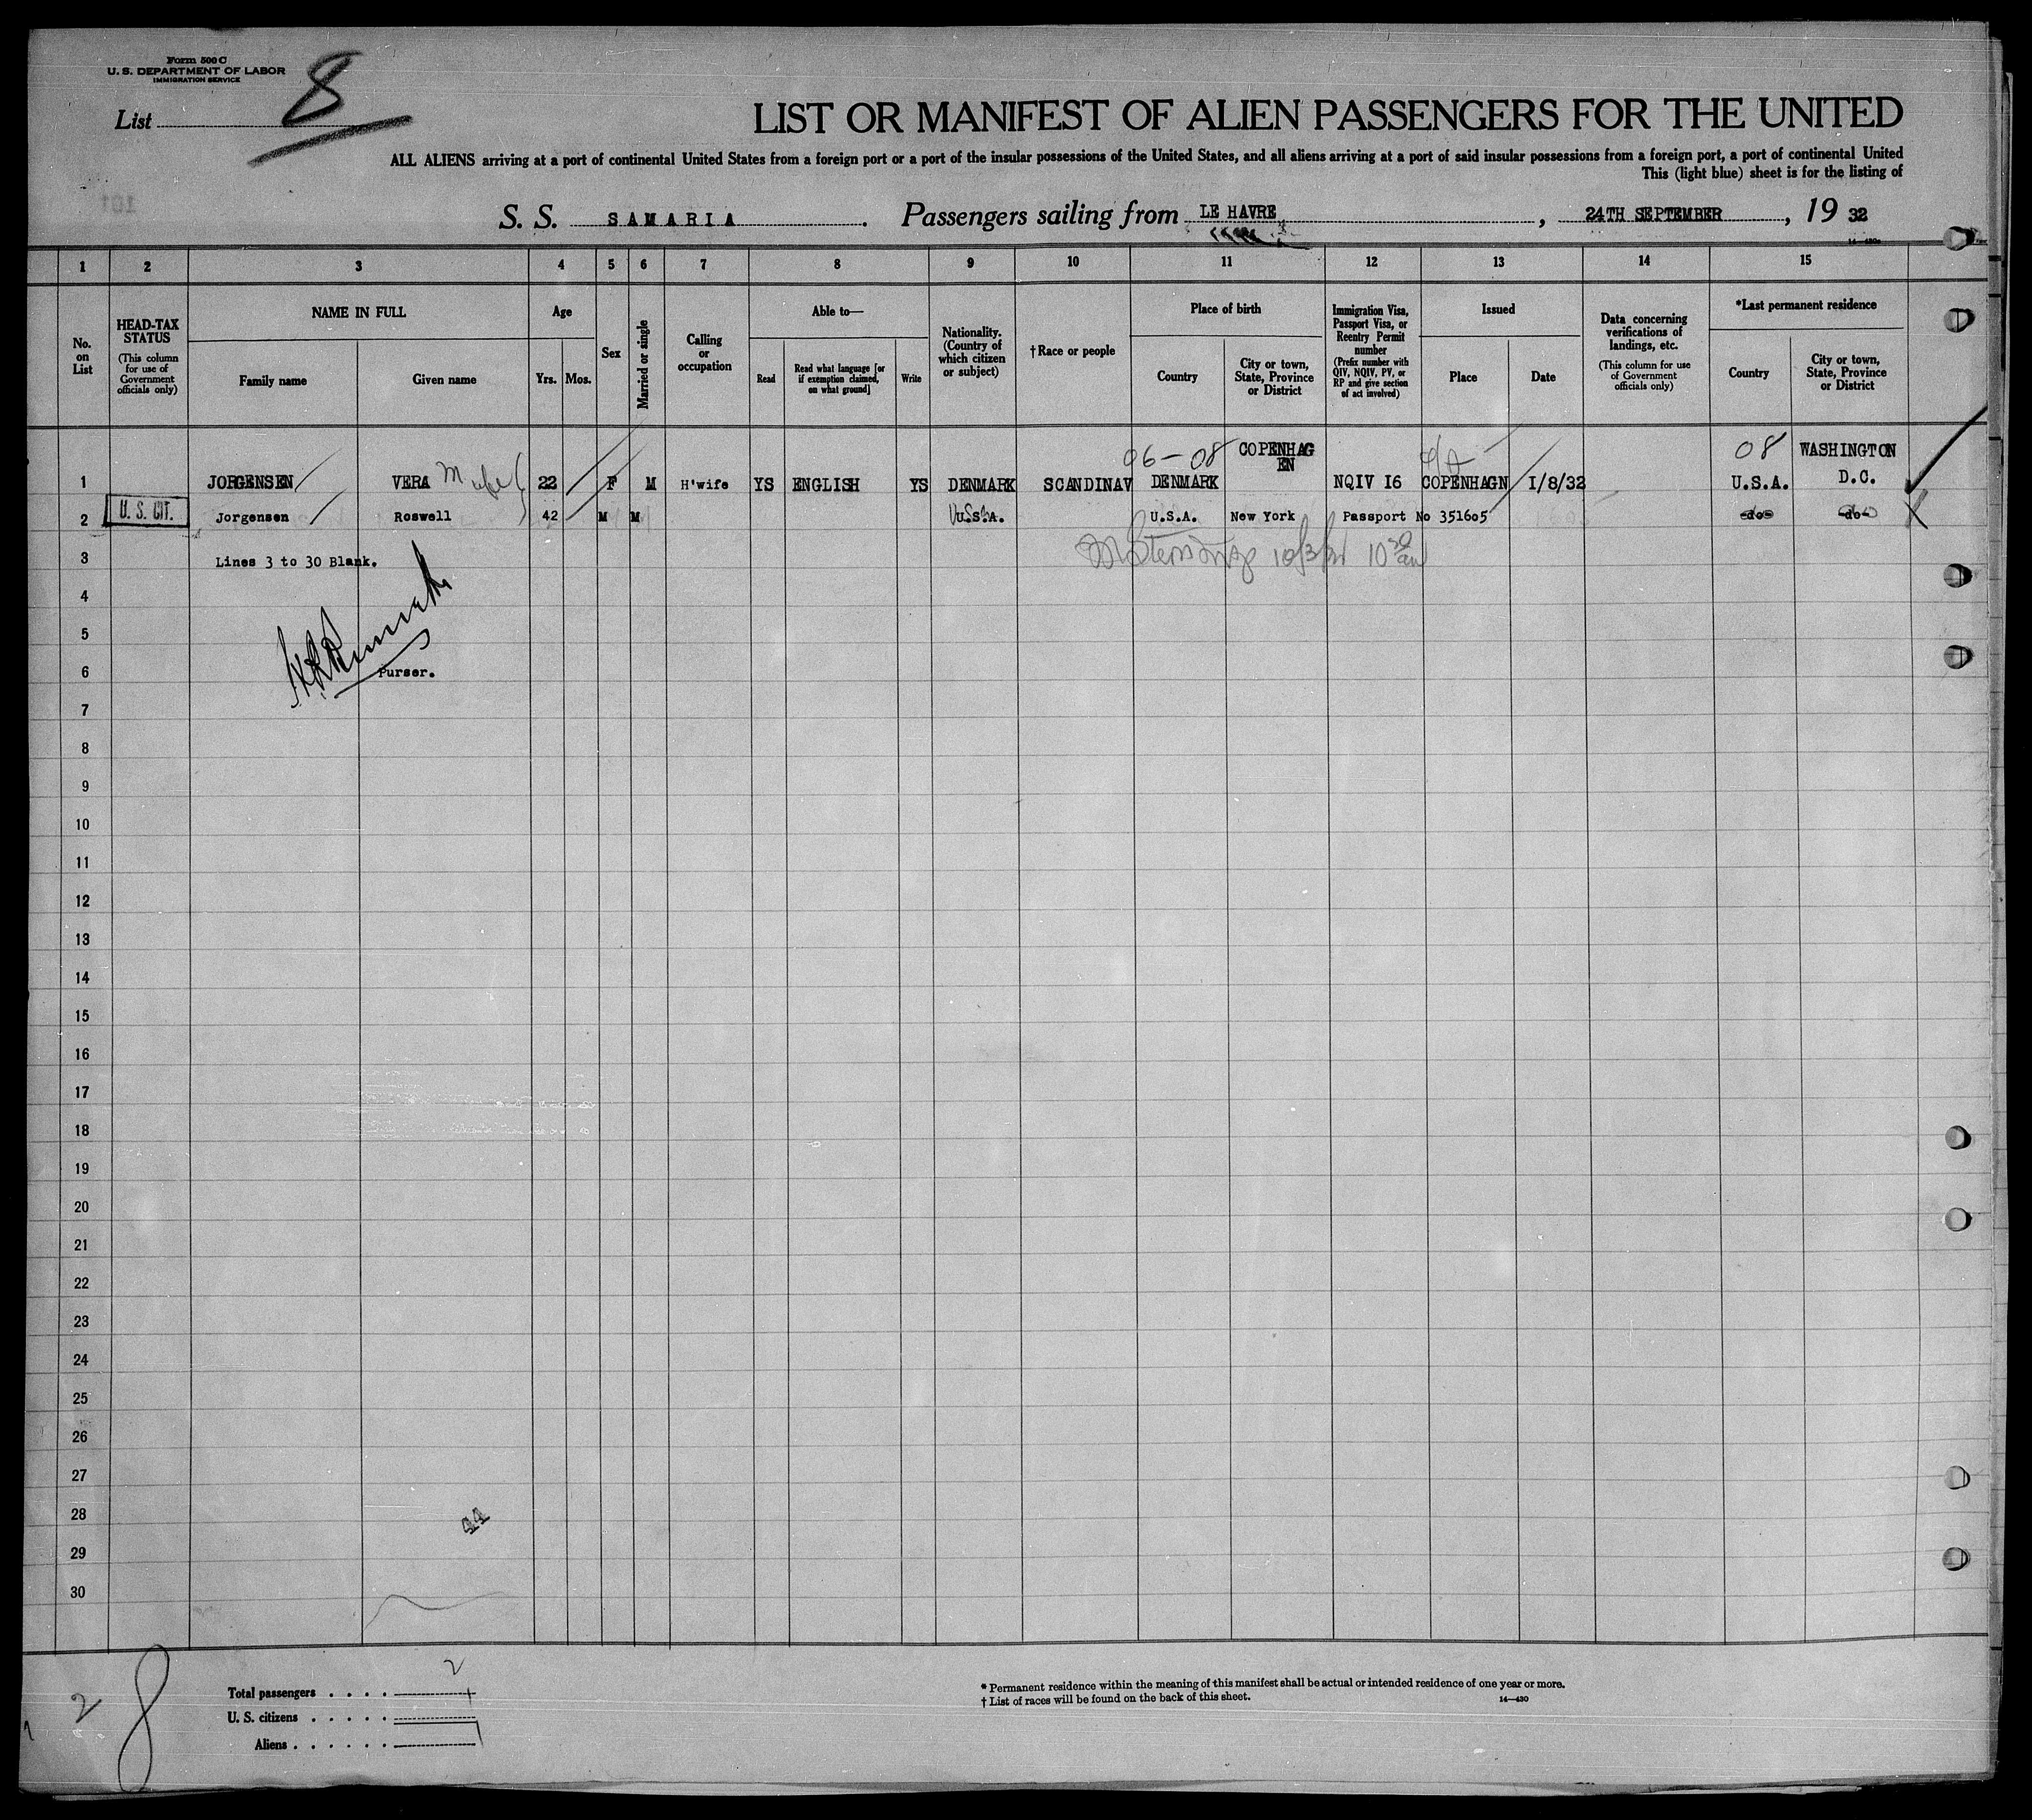 Form 500 C
U. S. DEPARTMENT OF LABOR
IMMIGRATION SERVICE
List 8
LIST OR MANIFEST OF ALIEN PASSENGERS FOR THE UNITED
ALL ALIENS arriving at a port of continental United States from a foreign port or a port of the insular possessions of the United States, and all aliens arriving at a port of said insular possessions from a foreign port, a port of continental United
This (light blue) sheet is for the listing of
101
S. S. SAMARIA. Passengers sailing from LE HAVRE, 24TH SEPTEMBER, 19 32
14—430a
1 2 3 4 5 6 7 8 9 10 11 12 13 14 15
No. on List
HEAD-TAX STATUS (This column for use of Government officials only)
NAME IN FULL
Family name Given name
Age
Yrs. Mos.
Sex
Married or single
Calling or occupation
Able to—
Read Read what language [or if exemption claimed, on what ground] Write
Nationality. (Country of which citizen or subject)
†Race or people
Place of birth
Country City or town, State, Province or District
Immigration Visa, Passport Visa, or Reentry Permit number (Prefix number with QIV, NQIV, PV, or RP and give section of act involved)
Issued
Place Date
Data concerning verifications of landings, etc. (This column for use of Government officials only)
*Last permanent residence
Country City or town, State, Province or District
06-08 COPENHAG 08 WASHINGTON
EN
1 JORGENSEN VERA 22 F M H'wife YS ENGLISH YS DENMARK SCANDINAV DENMARK NQIV I6 COPENHAGN I/8/32 U.S.A. D.C.
2 U. S. CIT. Jorgensen Roswell 42 M M U.S.A. U.S.A. New York Passport No 351605 -do- -do-
3 Lines 3 to 30 Blank.
4
5
6 Purser.
7
8
9
10
11
12
13
14
15
16
17
18
19
20
21
22
23
24
25
26
27
28
44
29
30
2 8
Total passengers . . . . 2
U. S. citizens . . . . . 1
Aliens . . . . . . 1
* Permanent residence within the meaning of this manifest shall be actual or intended residence of one year or more.
† List of races will be found on the back of this sheet. 14—430